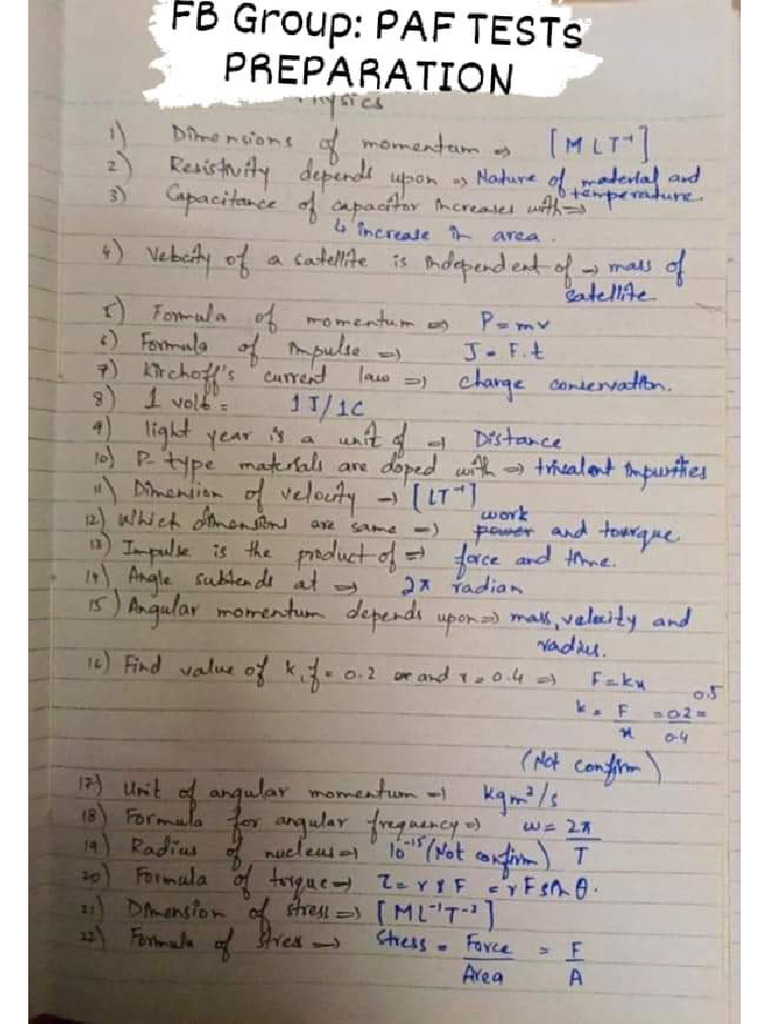 FB Group: PAF TESTs
PREPARATION
Physics
1) Dimensions of momentum ⇒ [MLT⁻¹]
2) Resistivity depends upon ⇒ Nature of material and
temperature.
3) Capacitance of capacitor increases with ⇒
↳ increase in area.
4) Velocity of a satellite is independent of → mass of
satellite
5) Formula of momentum ⇒ P=mv
6) Formula of impulse ⇒ J = F.t
7) Kirchoff's current law ⇒ charge conservation.
8) 1 volt = 1J/1C
9) light year is a unit of → Distance
10) P-type materials are doped with → trivalent impurities
11) Dimension of velocity → [LT⁻¹]
work
12) Which dimensions are same ⇒ power and tourque
13) Impulse is the product of ⇒ force and time.
14) Angle subtends at ⇒ 2π radian
15) Angular momentum depends upon ⇒ mass, velocity and
radius.
16) Find value of k, f = 0.2 and x = 0.4 ⇒ F=kx
k = F/x = 0.2/0.4 = 0.5
(Not confirm)
17) Unit of angular momentum ⇒ kgm²/s
18) Formula for angular frequency ⇒ ω = 2π/T
19) Radius of nucleus ⇒ 10⁻¹⁵ (Not confirm)
20) Formula of torque ⇒ τ = r x F = rF sin θ.
21) Dimension of stress ⇒ [ML⁻¹T⁻²]
22) Formula of stress ⇒ Stress = Force/Area = F/A